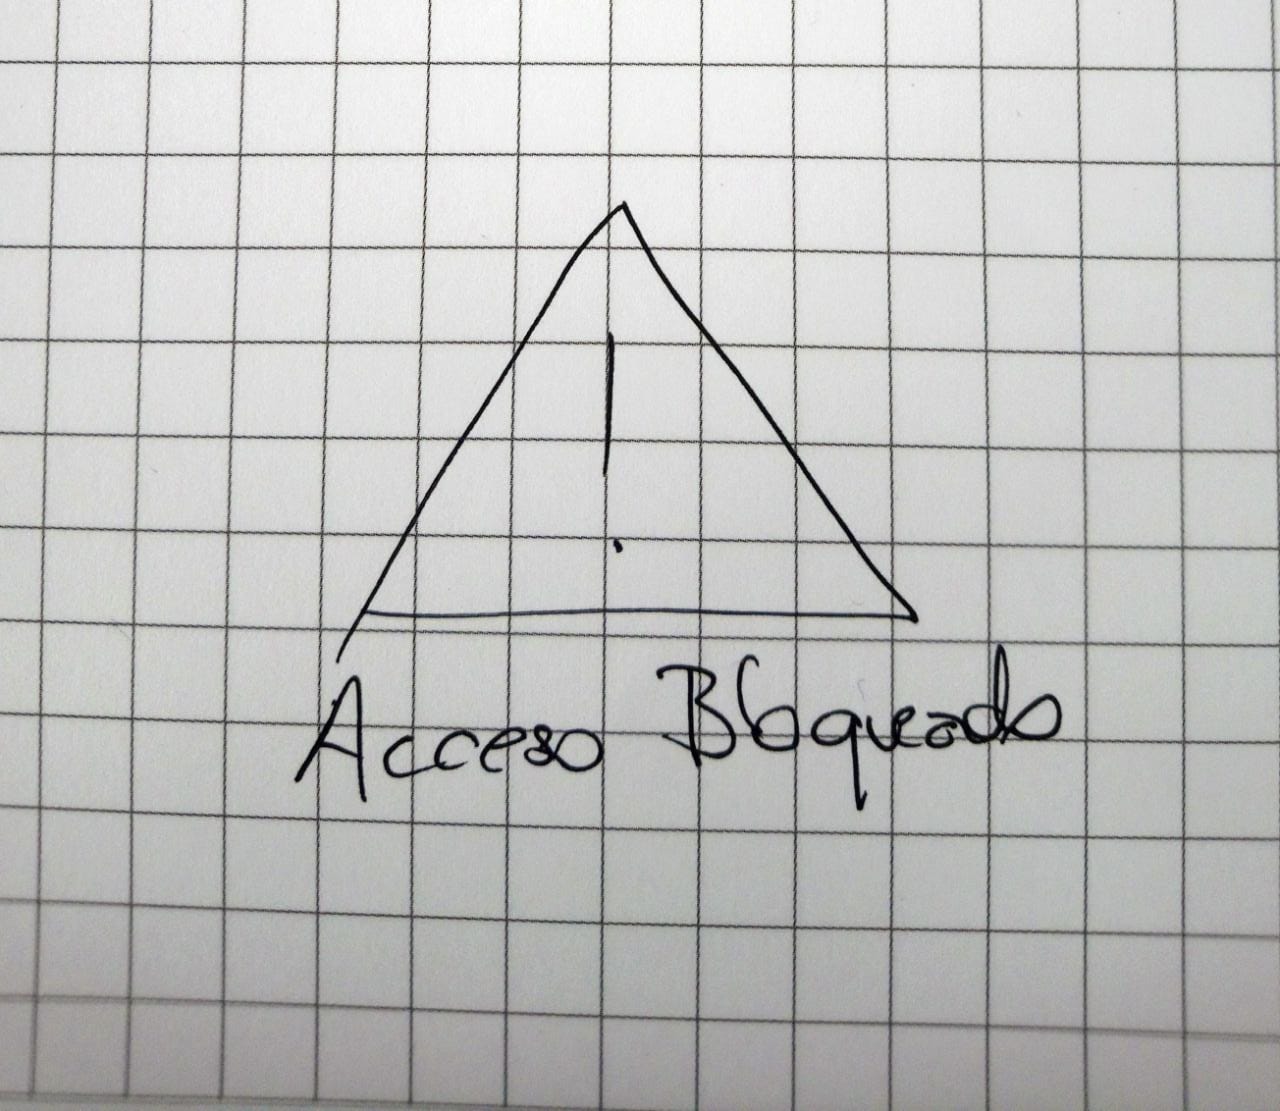 !
Acceso Bloqueado